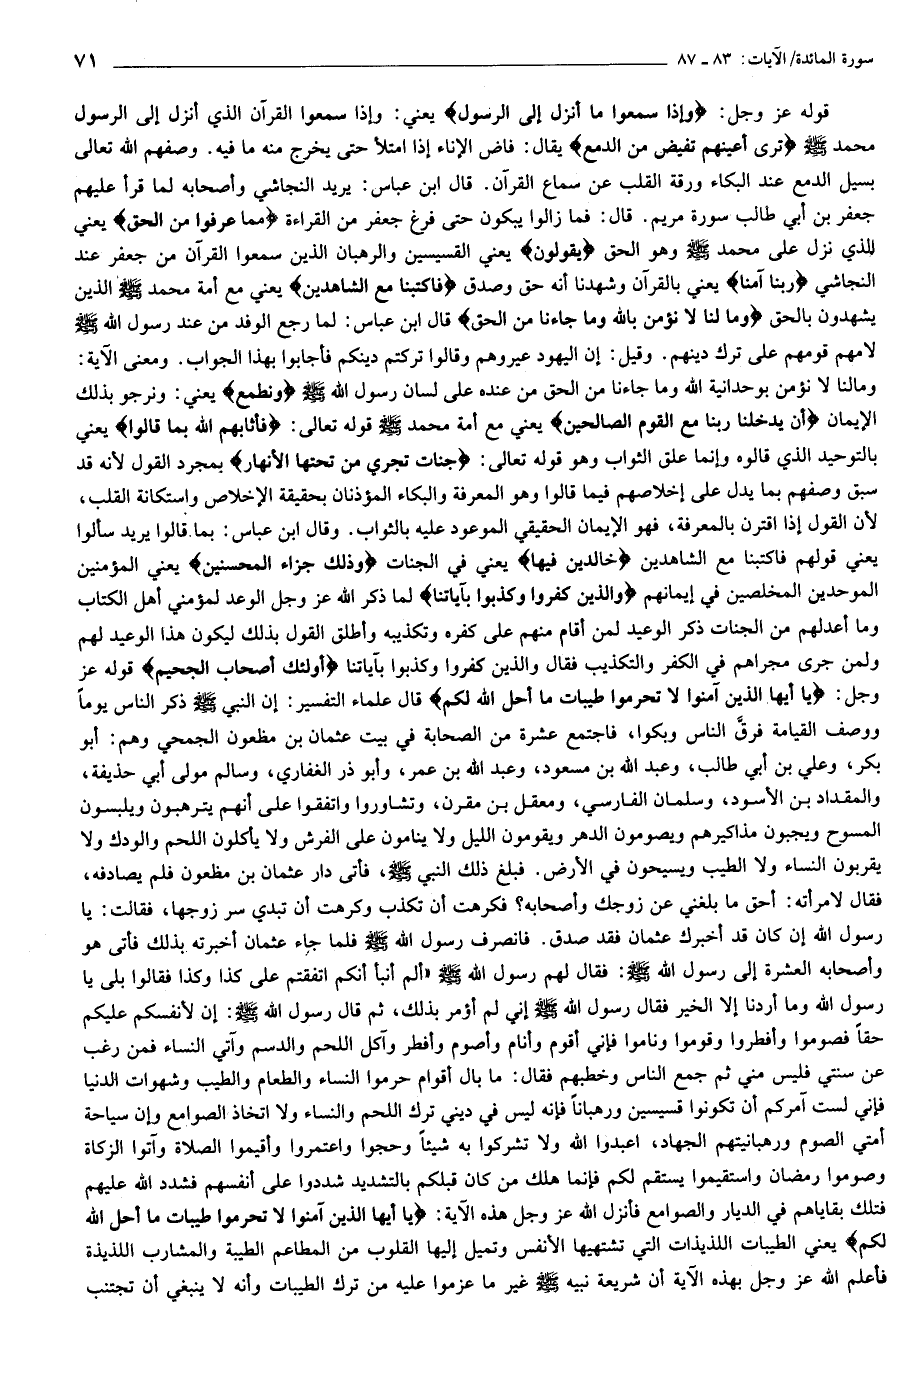 سورة المائدة/ الآيات: ٨٣ ـ ٨٧ ٧١
قوله عز وجل: ﴿وإذا سمعوا ما أنزل إلى الرسول﴾ يعني: وإذا سمعوا القرآن الذي أنزل إلى الرسول
محمد ﷺ ﴿ترى أعينهم تفيض من الدمع﴾ يقال: فاض الإناء إذا امتلأ حتى يخرج منه ما فيه. وصفهم الله تعالى
بسيل الدمع عند البكاء ورقة القلب عن سماع القرآن. قال ابن عباس: يريد النجاشي وأصحابه لما قرأ عليهم
جعفر بن أبي طالب سورة مريم. قال: فما زالوا يبكون حتى فرغ جعفر من القراءة ﴿مما عرفوا من الحق﴾ يعني
الذي نزل على محمد ﷺ وهو الحق ﴿يقولون﴾ يعني القسيسين والرهبان الذين سمعوا القرآن من جعفر عند
النجاشي ﴿ربنا آمنا﴾ يعني بالقرآن وشهدنا أنه حق وصدق ﴿فاكتبنا مع الشاهدين﴾ يعني مع أمة محمد ﷺ الذين
يشهدون بالحق ﴿وما لنا لا نؤمن بالله وما جاءنا من الحق﴾ قال ابن عباس: لما رجع الوفد من عند رسول الله ﷺ
لامهم قومهم على ترك دينهم. وقيل: إن اليهود عيروهم وقالوا تركتم دينكم فأجابوا بهذا الجواب. ومعنى الآية:
ومالنا لا نؤمن بوحدانية الله وما جاءنا من الحق من عنده على لسان رسول الله ﷺ ﴿ونطمع﴾ يعني: ونرجو بذلك
الإيمان ﴿أن يدخلنا ربنا مع القوم الصالحين﴾ يعني مع أمة محمد ﷺ قوله تعالى: ﴿فأثابهم الله بما قالوا﴾ يعني
بالتوحيد الذي قالوه وإنما علق الثواب وهو قوله تعالى: ﴿جنات تجري من تحتها الأنهار﴾ بمجرد القول لأنه قد
سبق وصفهم بما يدل على إخلاصهم فيما قالوا وهو المعرفة والبكاء المؤذنان بحقيقة الإخلاص واستكانة القلب،
لأن القول إذا اقترن بالمعرفة، فهو الإيمان الحقيقي الموعود عليه بالثواب. وقال ابن عباس: بما قالوا يريد سألوا
يعني قولهم فاكتبنا مع الشاهدين ﴿خالدين فيها﴾ يعني في الجنات ﴿وذلك جزاء المحسنين﴾ يعني المؤمنين
الموحدين المخلصين في إيمانهم ﴿والذين كفروا وكذبوا بآياتنا﴾ لما ذكر الله عز وجل الوعد لمؤمني أهل الكتاب
وما أعدلهم من الجنات ذكر الوعيد لمن أقام منهم على كفره وتكذيبه وأطلق القول بذلك ليكون هذا الوعيد لهم
ولمن جرى مجراهم في الكفر والتكذيب فقال والذين كفروا وكذبوا بآياتنا ﴿أولئك أصحاب الجحيم﴾ قوله عز
وجل: ﴿يا أيها الذين آمنوا لا تحرموا طيبات ما أحل الله لكم﴾ قال علماء التفسير: إن النبي ﷺ ذكر الناس يوماً
ووصف القيامة فرقَّ الناس وبكوا، فاجتمع عشرة من الصحابة في بيت عثمان بن مظعون الجمحي وهم: أبو
بكر، وعلي بن أبي طالب، وعبد الله بن مسعود، وعبد الله بن عمر، وأبو ذر الغفاري، وسالم مولى أبي حذيفة،
والمقداد بن الأسود، وسلمان الفارسي، ومعقل بن مقرن، وتشاوروا واتفقوا على أنهم يترهبون ويلبسون
المسوح ويجبون مذاكيرهم ويصومون الدهر ويقومون الليل ولا ينامون على الفرش ولا يأكلون اللحم والودك ولا
يقربون النساء ولا الطيب ويسيحون في الأرض. فبلغ ذلك النبي ﷺ، فأتى دار عثمان بن مظعون فلم يصادفه،
فقال لامرأته: أحق ما بلغني عن زوجك وأصحابه؟ فكرهت أن تكذب وكرهت أن تبدي سر زوجها، فقالت: يا
رسول الله إن كان قد أخبرك عثمان فقد صدق. فانصرف رسول الله ﷺ فلما جاء عثمان أخبرته بذلك فأتى هو
وأصحابه العشرة إلى رسول الله ﷺ: فقال لهم رسول الله ﷺ «ألم أنبأ أنكم اتفقتم على كذا وكذا فقالوا بلى يا
رسول الله وما أردنا إلا الخير فقال رسول الله ﷺ إني لم أؤمر بذلك، ثم قال رسول الله ﷺ: إن لأنفسكم عليكم
حقاً فصوموا وأفطروا وقوموا وناموا فإني أقوم وأنام وأصوم وأفطر وآكل اللحم والدسم وآتي النساء فمن رغب
عن سنتي فليس مني ثم جمع الناس وخطبهم فقال: ما بال أقوام حرموا النساء والطعام والطيب وشهوات الدنيا
فإني لست آمركم أن تكونوا قسيسين ورهباناً فإنه ليس في ديني ترك اللحم والنساء ولا اتخاذ الصوامع وإن سياحة
أمتي الصوم ورهبانيتهم الجهاد، اعبدوا الله ولا تشركوا به شيئاً وحجوا واعتمروا وأقيموا الصلاة وآتوا الزكاة
وصوموا رمضان واستقيموا يستقم لكم فإنما هلك من كان قبلكم بالتشديد شددوا على أنفسهم فشدد الله عليهم
فتلك بقاياهم في الديار والصوامع فأنزل الله عز وجل هذه الآية: ﴿يا أيها الذين آمنوا لا تحرموا طيبات ما أحل الله
لكم﴾ يعني الطيبات اللذيذات التي تشتهيها الأنفس وتميل إليها القلوب من المطاعم الطيبة والمشارب اللذيذة
فأعلم الله عز وجل بهذه الآية أن شريعة نبيه ﷺ غير ما عزموا عليه من ترك الطيبات وأنه لا ينبغي أن تجتنب